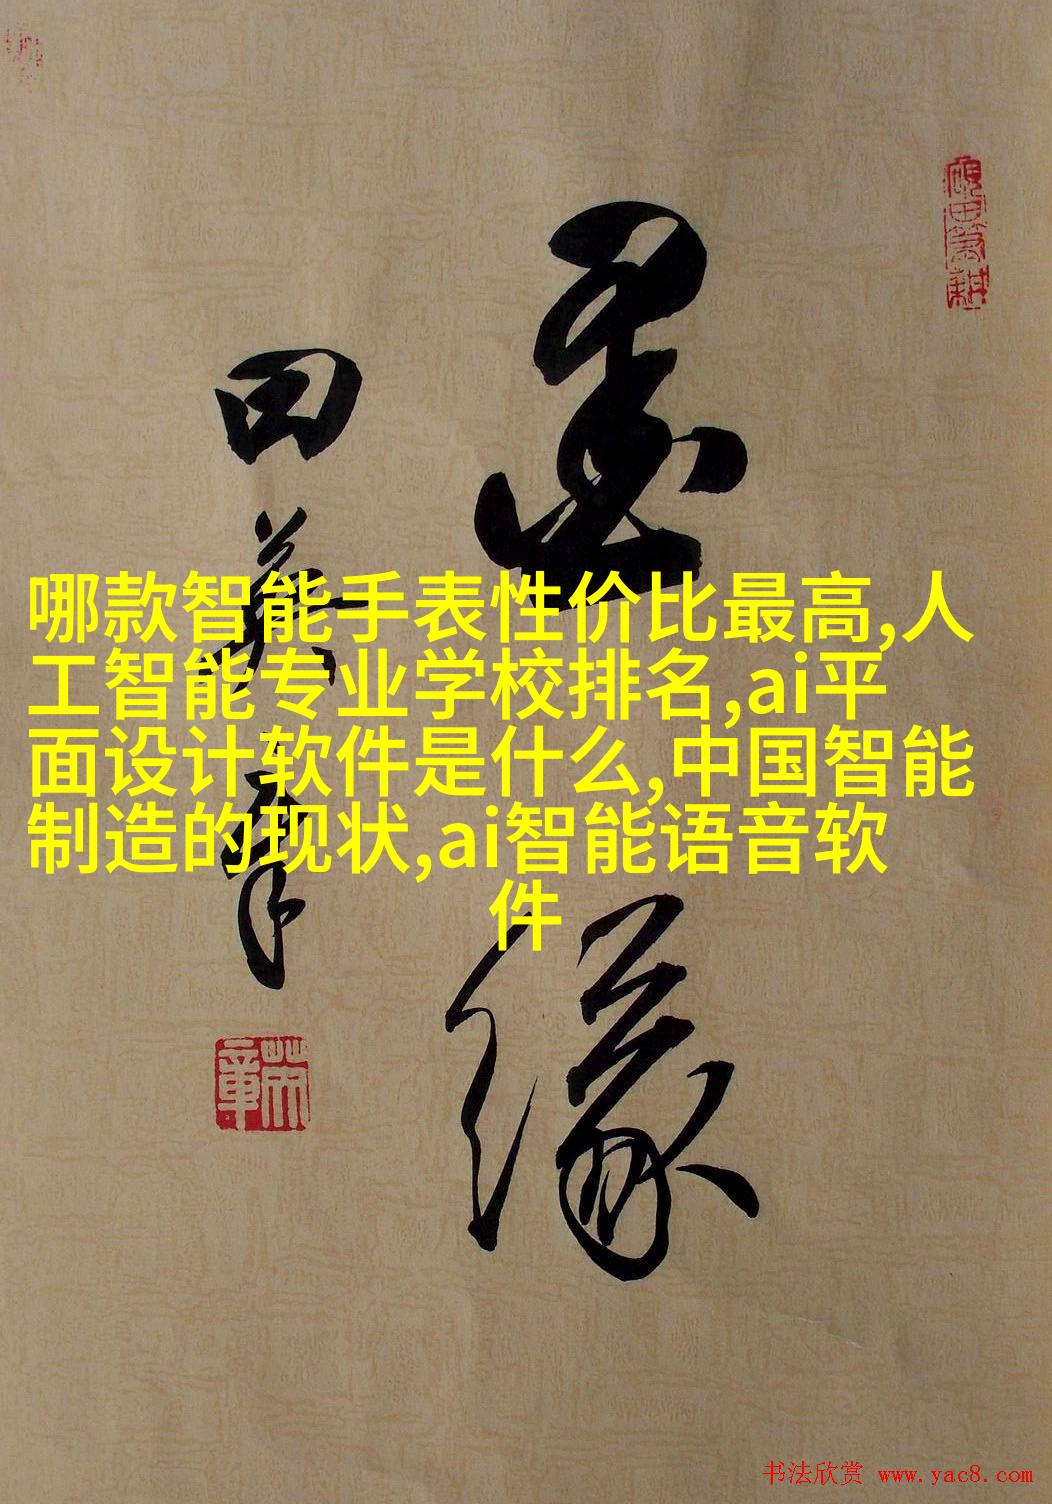 哪款智能手表性价比最高,人
工智能专业学校排名,ai平
面设计软件是什么,中国智能
制造的现状,ai智能语音软
件
墨缘
田英章
书法欣赏 www.yac8.com